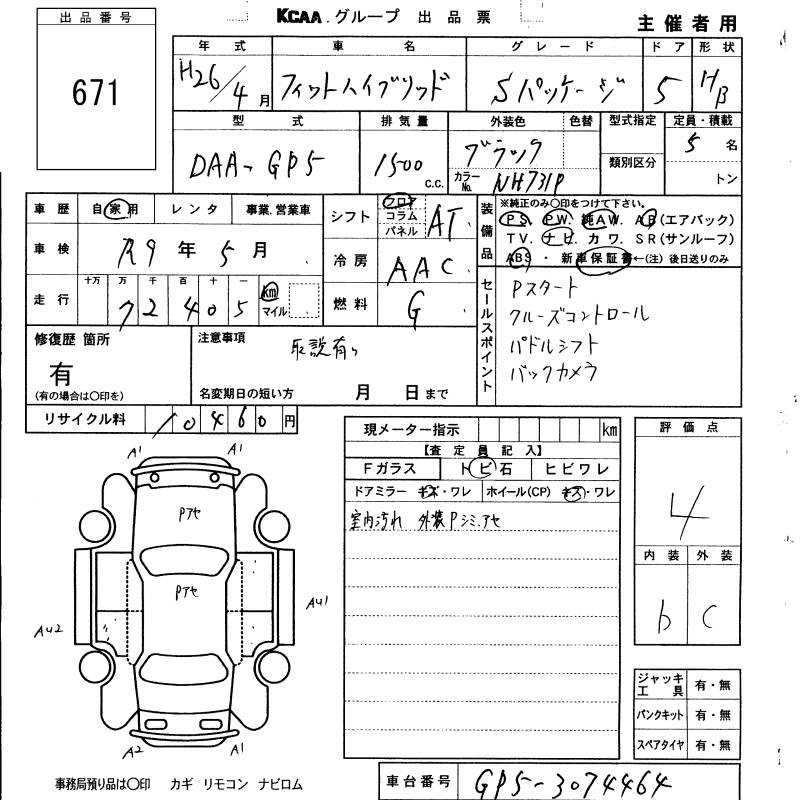 出品番号
671
KCAA.グループ 出品票
主催者用
年式 車名 グレード ドア 形状
H26/4月 フィットハイブリッド Sパッケージ 5 HB
型式 排気量 外装色 色替 型式指定 定員・積載
DAA-GP5 1500 c.c. ブラック 5名
カラーNo. NH731P 類別区分 トン
車歴 自家用 レンタ 事業.営業車
車検 R9年5月
走行 十万 万 千 百 十 一
72405 km マイル
シフト フロア コラム パネル AT
冷房 AAC
燃料 G
装備品
※純正のみ〇印をつけて下さい。
PS. PW. 純AW. AB(エアバック)
TV. ナビ. カワ. SR(サンルーフ)
ABS ・ 新車保証書←(注)後日送りのみ
セールスポイント
Pスタート
クルーズコントロール
パドルシフト
バックカメラ
修復歴 箇所
有
(有の場合は〇印を)
注意事項
取説有り
名変期日の短い方 月 日まで
リサイクル料 10460円
現メーター指示 km
【査定員記入】
Fガラス トビ石 ヒビワレ
ドアミラー キズ・ワレ ホイール(CP) キズ・ワレ
室内汚れ 外装Pシミ.アセ
評価点
4
内装 外装
b C
A1 A1
Pアセ
Pアセ
AU2 AU1
A2 A1
ジャッキ工具 有・無
パンクキット 有・無
スペアタイヤ 有・無
事務局預り品は〇印 カギ リモコン ナビロム
車台番号 GP5-3074464